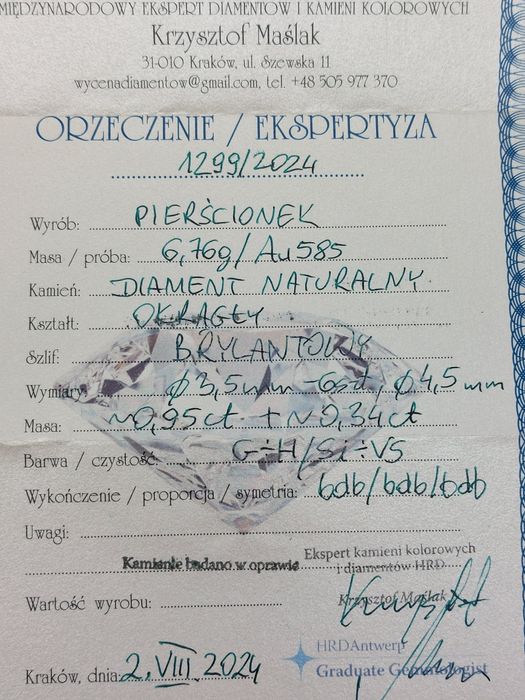 MIĘDZYNARODOWY EKSPERT DIAMENTÓW I KAMIENI KOLOROWYCH
Krzysztof Maślak
31-010 Kraków, ul. Szewska 11
wycenadiamentow@gmail.com, tel. +48 505 977 370
ORZECZENIE / EKSPERTYZA
1299/2024
Wyrób: PIERŚCIONEK
Masa / próba: 6,76g / Au 585
Kamień: DIAMENT NATURALNY
Kształt: OKRĄGŁY
Szlif: BRYLANTOWY
Wymiary: ϕ 3,5mm - 6szt, ϕ 4,5mm
Masa: ~0,95ct + ~0,34ct
Barwa / czystość: G÷H/Si÷VS
Wykończenie / proporcja / symetria: bdb/bdb/bdb
Uwagi:
Kamienie badano w oprawie
Ekspert kamieni kolorowych
i diamentów HRD
Krzysztof Maślak
Wartość wyrobu:
HRDAntwerp
Graduate Gemmologist
Kraków, dnia: 2. VIII. 2024